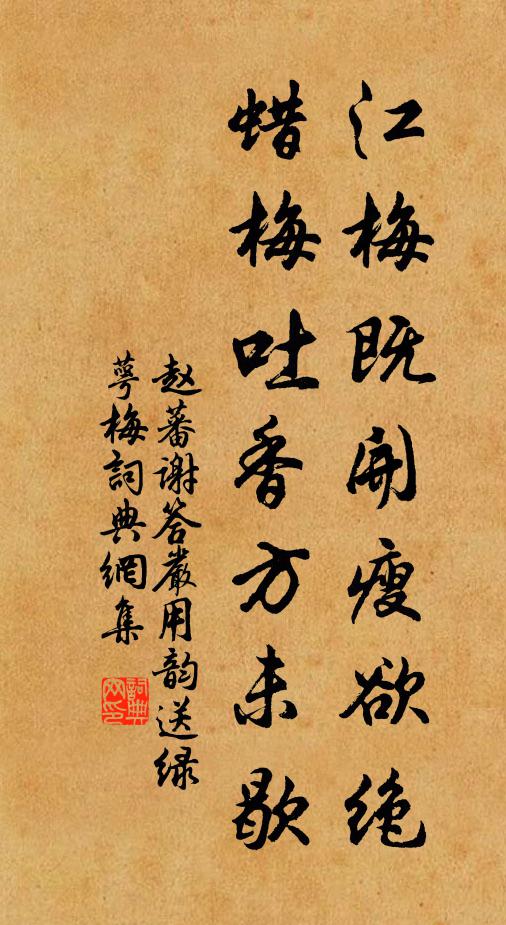 江梅既开瘦欲绝
蜡梅吐香方未歇
赵蕃谢答嚴用韵送绿
萼梅詞典網集
詞典
网印